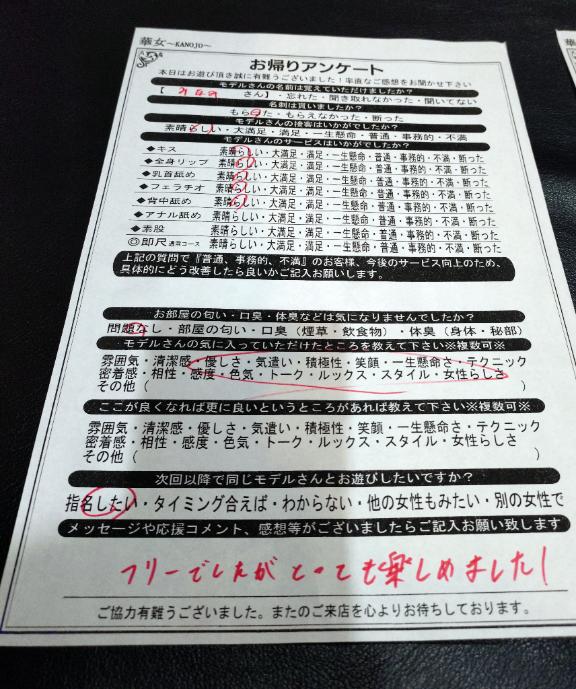 華女～KANOJO～
お帰りアンケート
本日はお遊び頂き誠に有難うございました！率直なご感想をお聞かせ下さい
モデルさんの名前は覚えていただけましたか？
【 さん】・忘れた・聞き取れなかった・聞いてない
名刺は貰いましたか？
もらえた・もらえなかった・断った
モデルさんの接客はいかがでしたか？
素晴らしい・大満足・満足・一生懸命・普通・事務的・不満
モデルさんのサービスはいかがでしたか？
◆キス 素晴らしい・大満足・満足・一生懸命・普通・事務的・不満・断った
◆全身リップ 素晴らしい・大満足・満足・一生懸命・普通・事務的・不満・断った
◆乳首舐め 素晴らしい・大満足・満足・一生懸命・普通・事務的・不満・断った
◆フェラチオ 素晴らしい・大満足・満足・一生懸命・普通・事務的・不満・断った
◆背中舐め 素晴らしい・大満足・満足・一生懸命・普通・事務的・不満・断った
◆アナル舐め 素晴らしい・大満足・満足・一生懸命・普通・事務的・不満・断った
◆素股 素晴らしい・大満足・満足・一生懸命・普通・事務的・不満・断った
◎即尺通常コース 素晴らしい・大満足・満足・一生懸命・普通・事務的・不満・断った
上記の質問で『普通、事務的、不満』のお客様、今後のサービス向上のため、
具体的にどう改善したら良いかご記入お願いします。
お部屋の匂い・口臭・体臭などは気になりませんでしたか？
問題なし・部屋の匂い・口臭（煙草・飲食物）・体臭（身体・秘部）
モデルさんの気に入っていただけたところを教えて下さい※複数可※
雰囲気・清潔感・優しさ・気遣い・積極性・笑顔・一生懸命さ・テクニック
密着感・相性・感度・色気・トーク・ルックス・スタイル・女性らしさ
その他（ ）
ここが良くなれば更に良いというところがあれば教えて下さい※複数可※
雰囲気・清潔感・優しさ・気遣い・積極性・笑顔・一生懸命さ・テクニック
密着感・相性・感度・色気・トーク・ルックス・スタイル・女性らしさ
その他（ ）
次回以降で同じモデルさんとお遊びしたいですか？
指名したい・タイミング合えば・わからない・他の女性もみたい・別の女性で
メッセージや応援コメント、感想等がございましたらご記入お願い致します
フリーでしたがとっても楽しめました！
ご協力有難うございました。またのご来店を心よりお待ちしております。